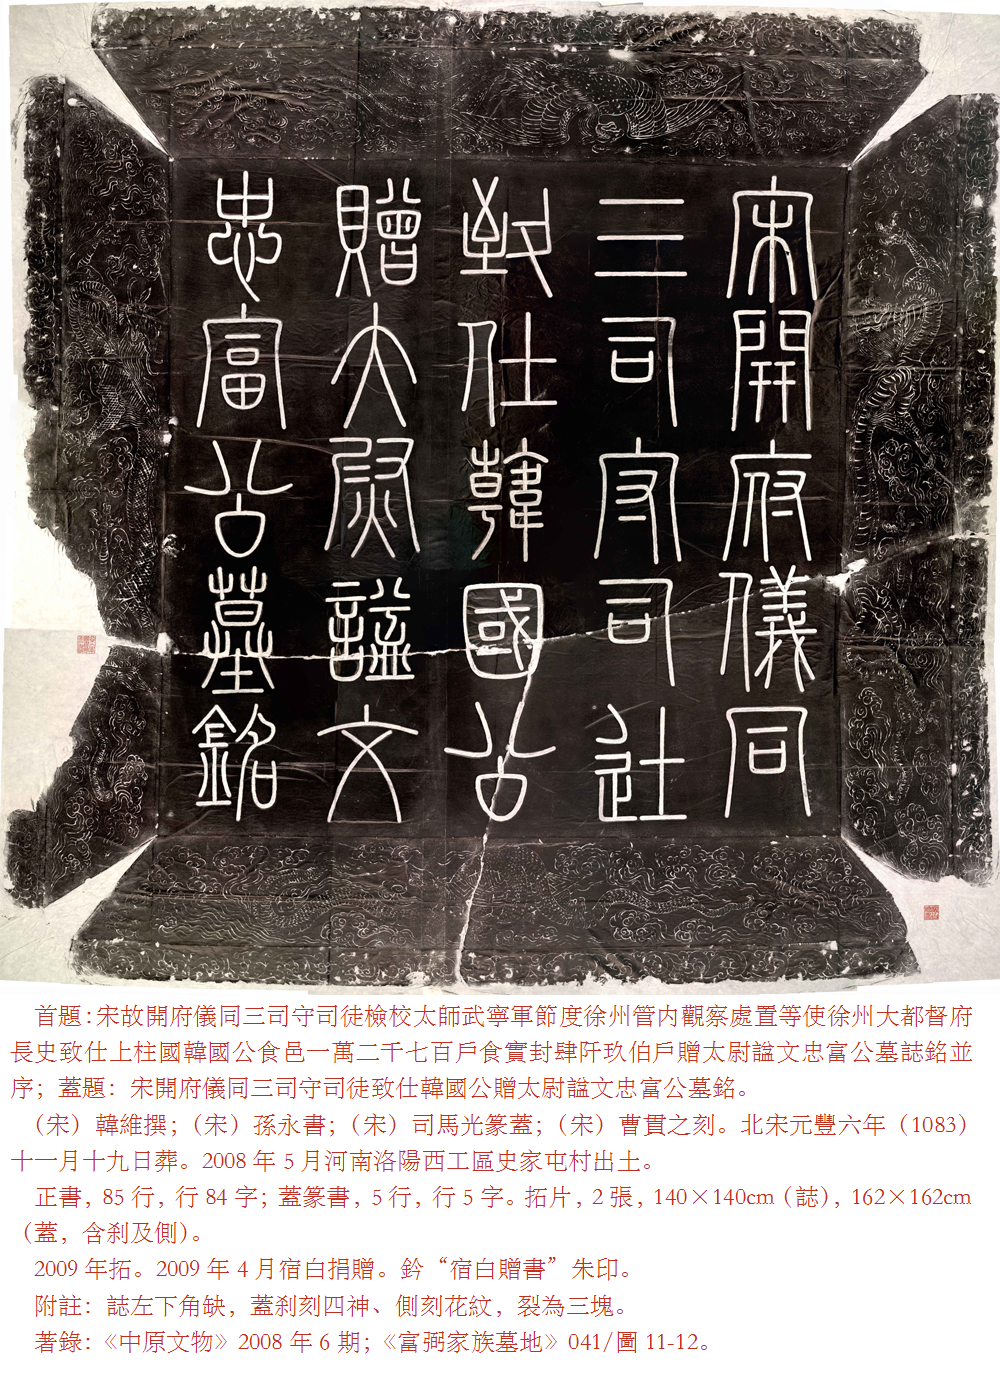 宋開府儀同
三司守司徒
致仕韓國公
贈太尉謚文
忠富公墓銘
首題：宋故開府儀同三司守司徒檢校太師武寧軍節度徐州管内觀察處置等使徐州大都督府
長史致仕上柱國韓國公食邑一萬二千七百戶食實封肆阡玖伯戶贈太尉謚文忠富公墓誌銘並
序；蓋題：宋開府儀同三司守司徒致仕韓國公贈太尉謚文忠富公墓銘。
（宋）韓維撰；（宋）孫永書；（宋）司馬光篆蓋；（宋）曹貫之刻。北宋元豐六年（1083）
十一月十九日葬。2008 年 5 月河南洛陽西工區史家屯村出土。
正書，85 行，行 84 字；蓋篆書，5 行，行 5 字。拓片，2 張，140×140cm（誌），162×162cm
（蓋，含刹及側）。
2009 年拓。2009 年 4 月宿白捐贈。鈐“宿白贈書”朱印。
附註：誌左下角缺，蓋刹刻四神、側刻花紋，裂為三塊。
著錄：《中原文物》2008 年 6 期；《富弼家族墓地》041/圖 11-12。